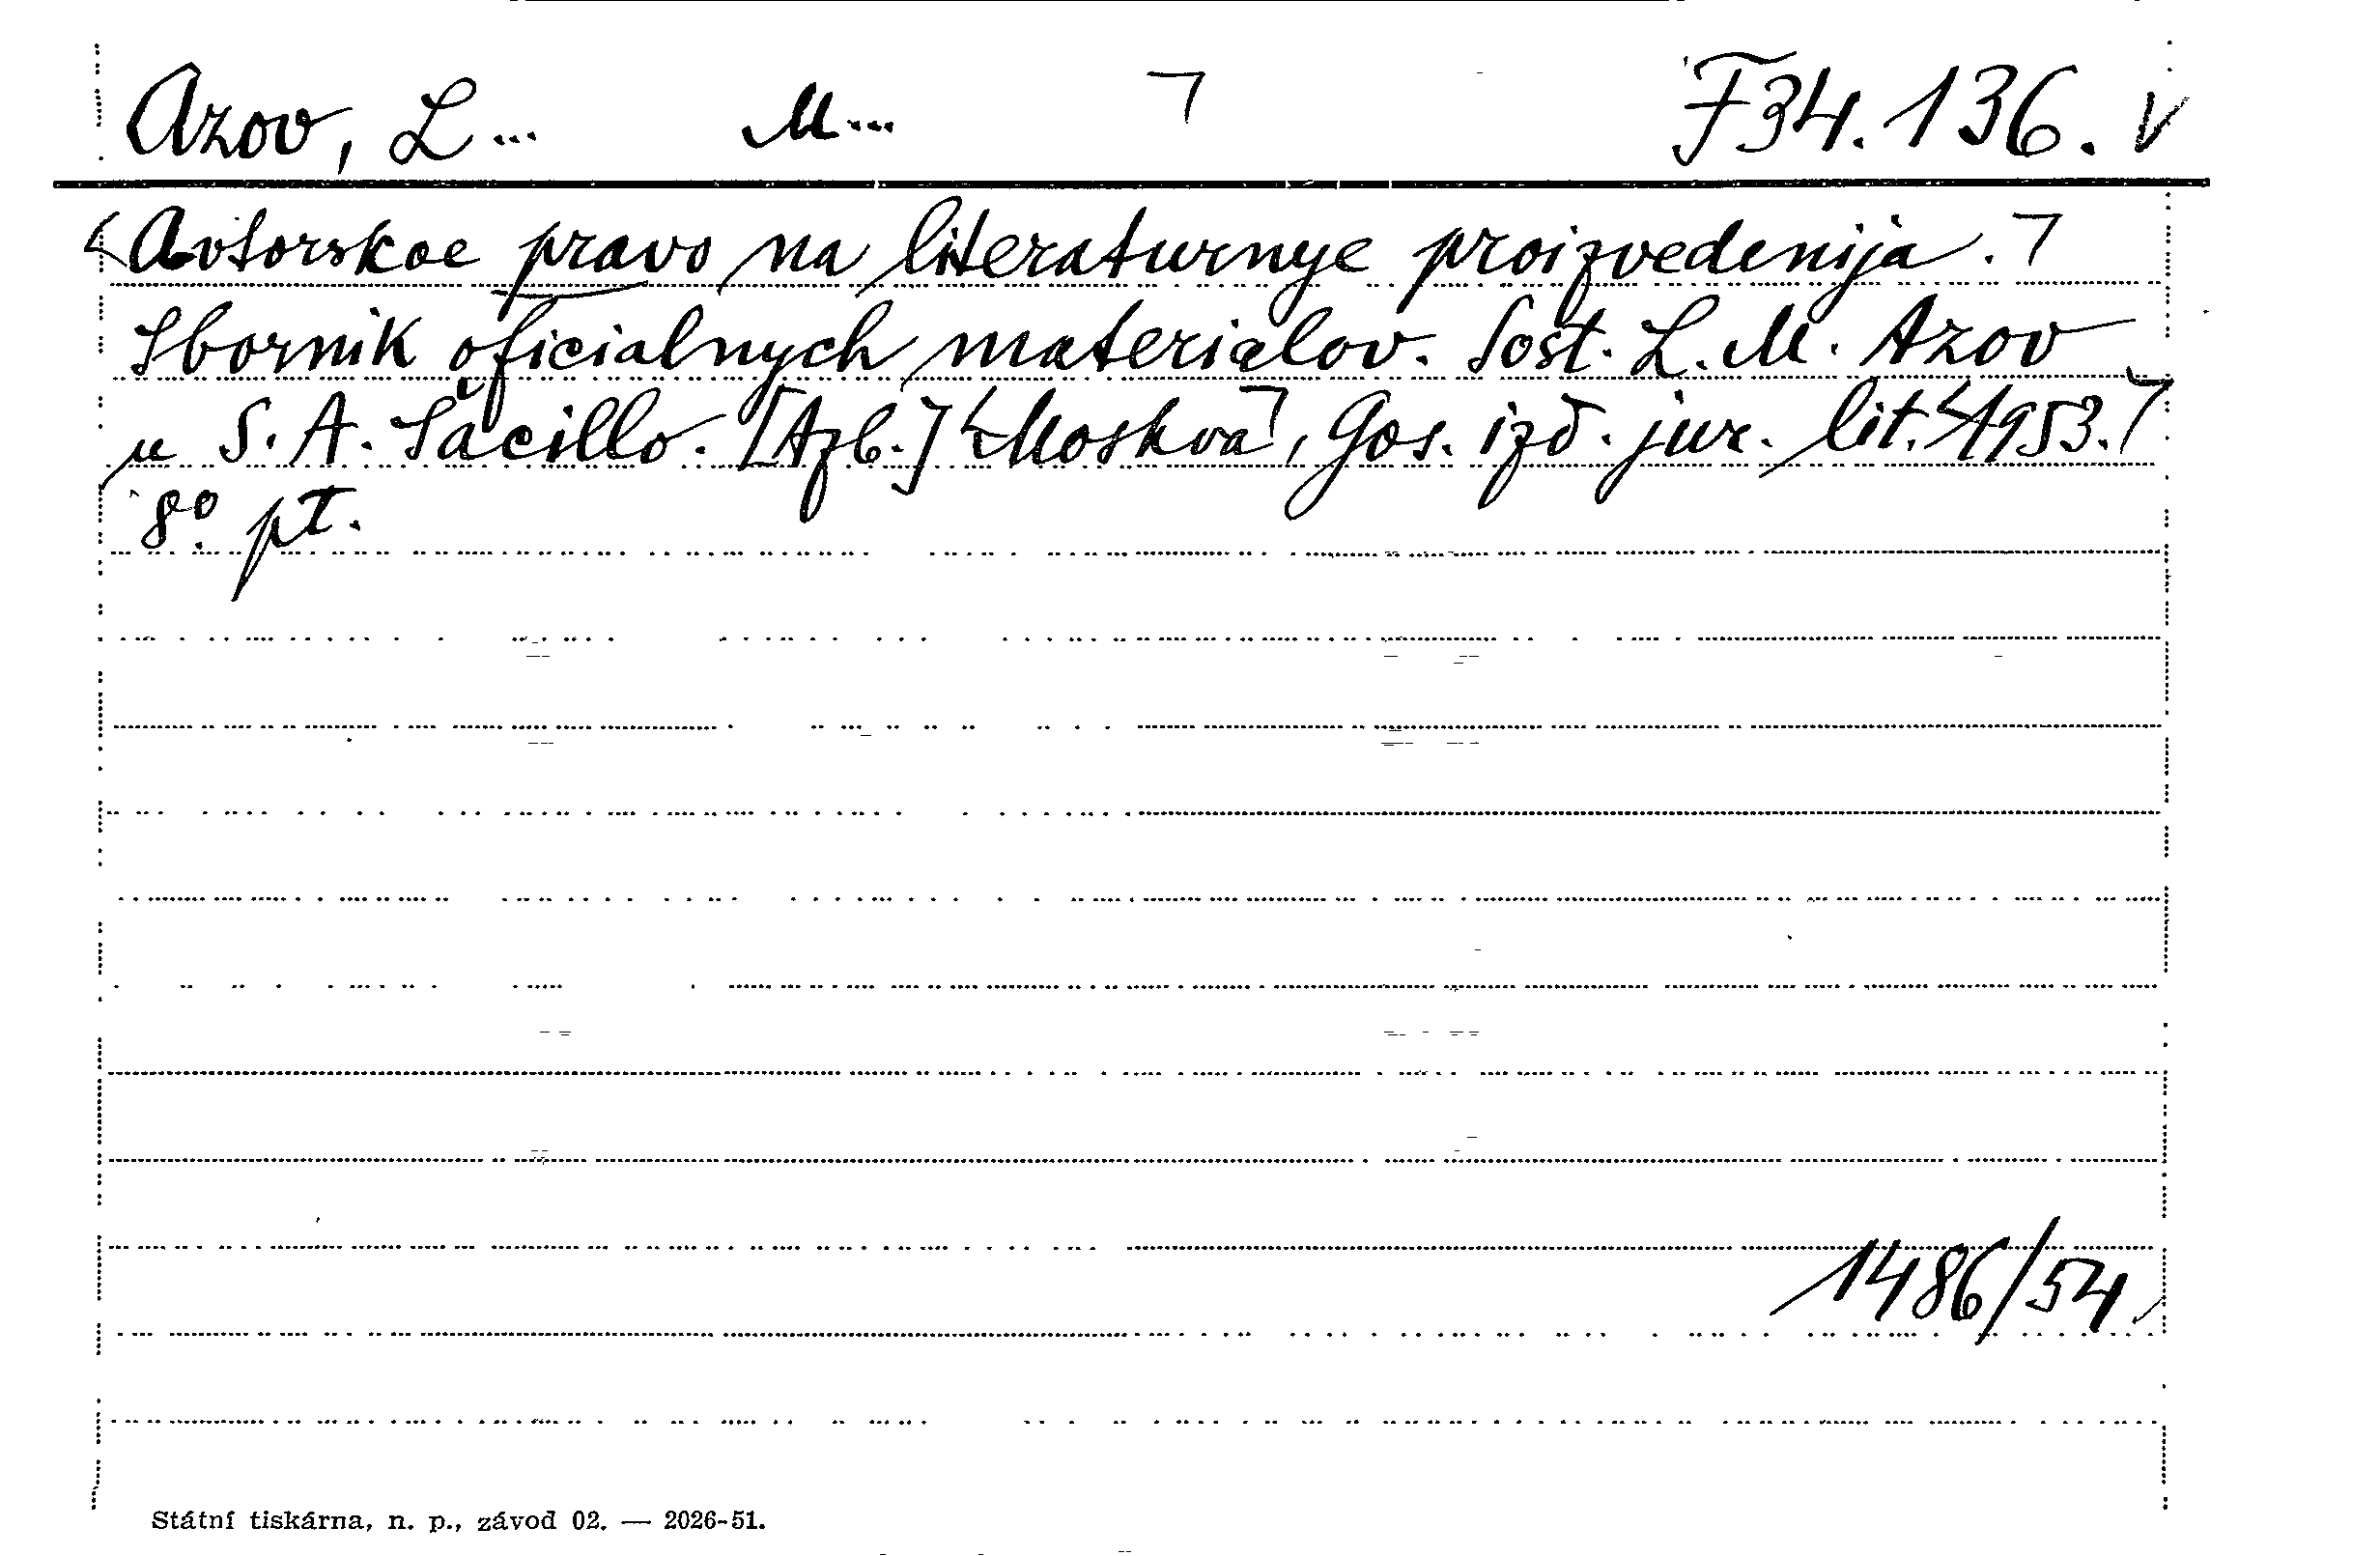 Azov, L... M... ⌝ F34.136. V
Avtorskoe pravo na literaturnye proizvedenija. ⌝
Sbornik oficialnych materialov. Sost. L. M. Azov
u S. A. Šacillo. [Azb.] Moskva⌝, Gos. izd. jur. lit. 1953.⌝
8° pt.
1486/54
Státní tiskárna, n. p., závod 02. — 2026-51.